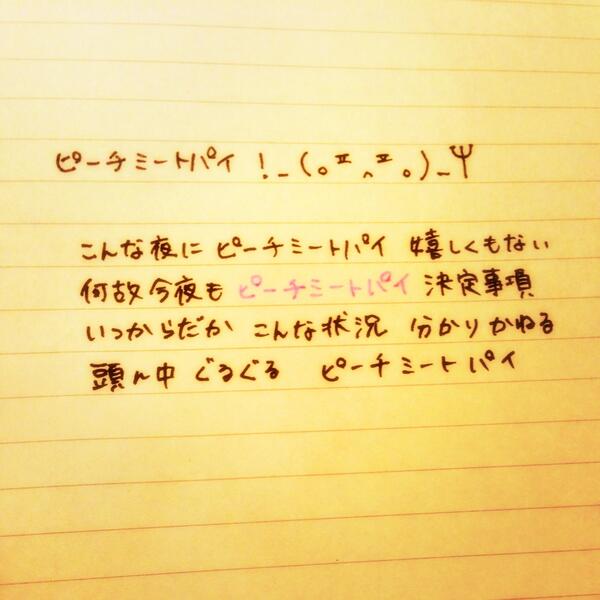 ピーチミートパイ！_(。ㅍ^ㅍ。)_Ψ
こんな夜に ピーチミートパイ 嬉しくもない
何故今夜も ピーチミートパイ 決定事項
いつからだか こんな状況 分かりかねる
頭ん中 ぐるぐる ピーチミートパイ